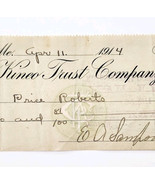 Me. Apr 11 1914
Kineo Trust Company
Price Roberts
and 00/100
E A Sampso